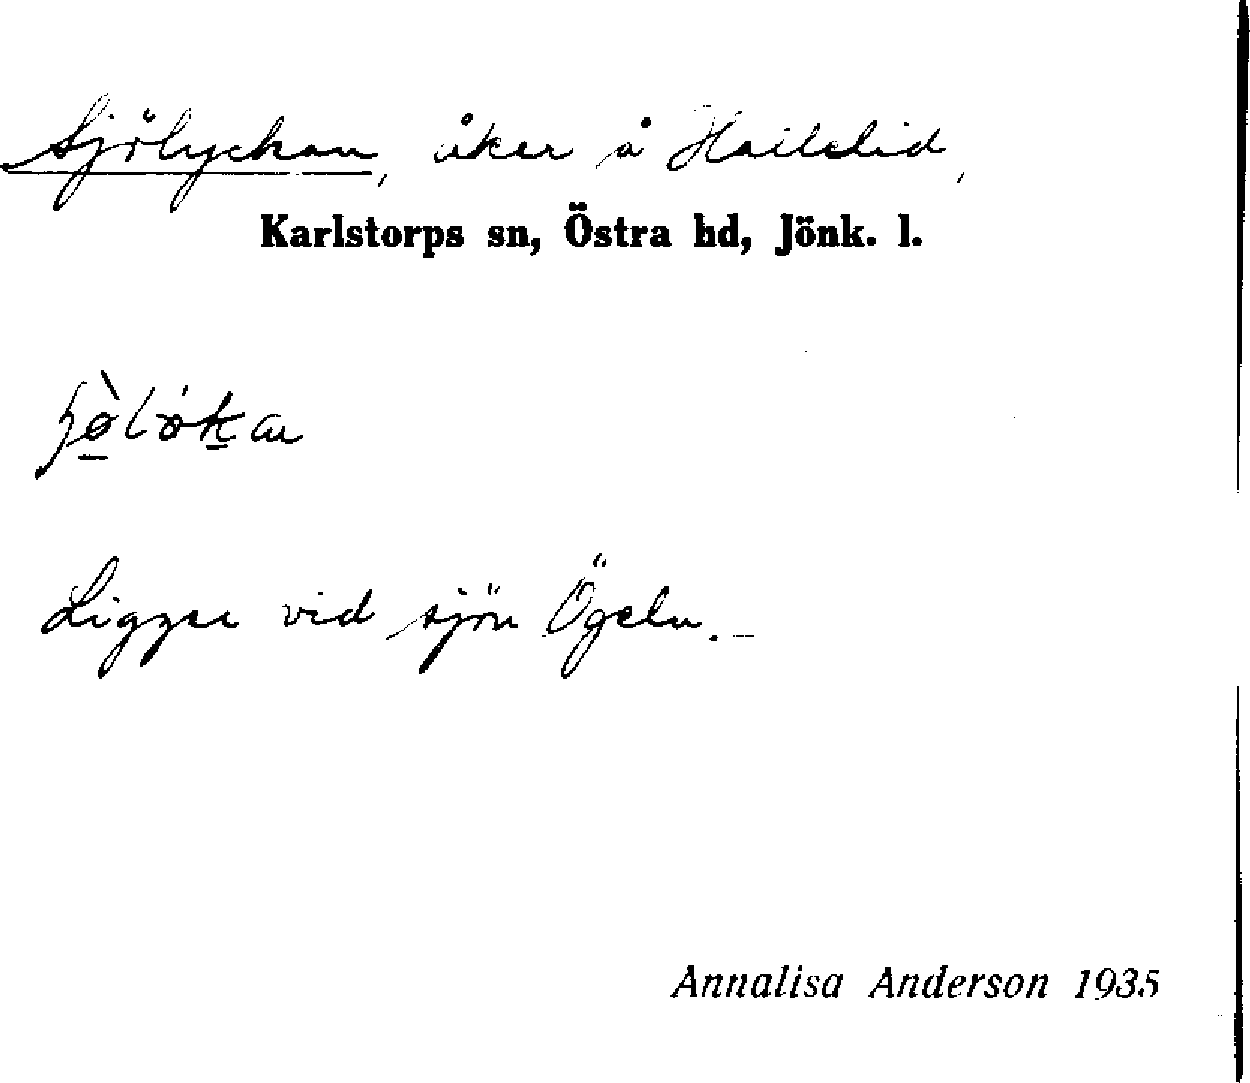 Sjölyckan, åker å Hailslid,
Karlstorps sn, Östra hd, Jönk. l.
Ligger vid sjön Ögeln. –
Annalisa Anderson 1935